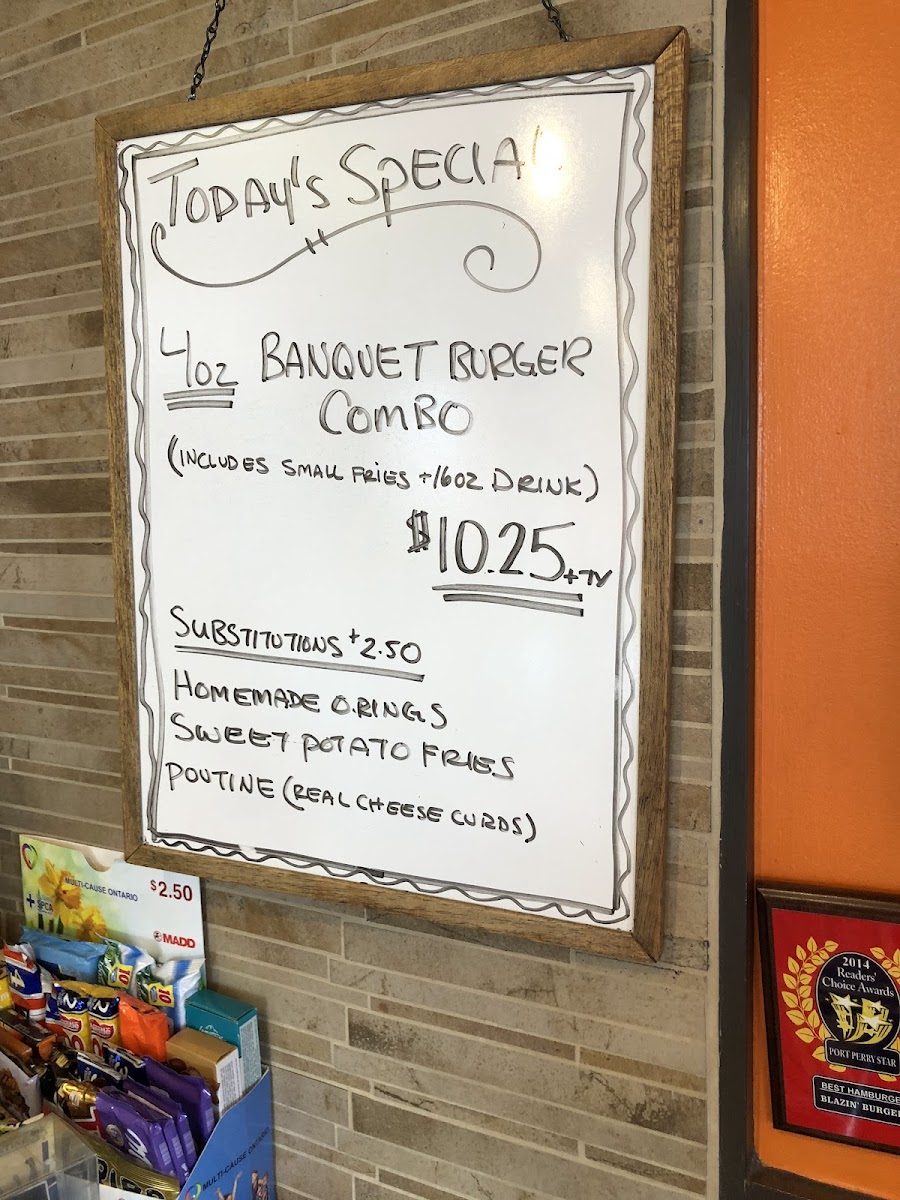 TODAY'S SPECIAL
4oz BANQUET BURGER
COMBO
(INCLUDES SMALL FRIES + 16oz DRINK)
$10.25 + TX
SUBSTITUTIONS + 2.50
HOMEMADE O.RINGS
SWEET POTATO FRIES
POUTINE (REAL CHEESE CURDS)
MULTI-CAUSE ONTARIO
$2.50
SPCA
MADD
MULTI-CAUSE ONTARIO
2014
Readers'
Choice Awards
PORT PERRY STAR
BEST HAMBURGE
BLAZIN' BURGE